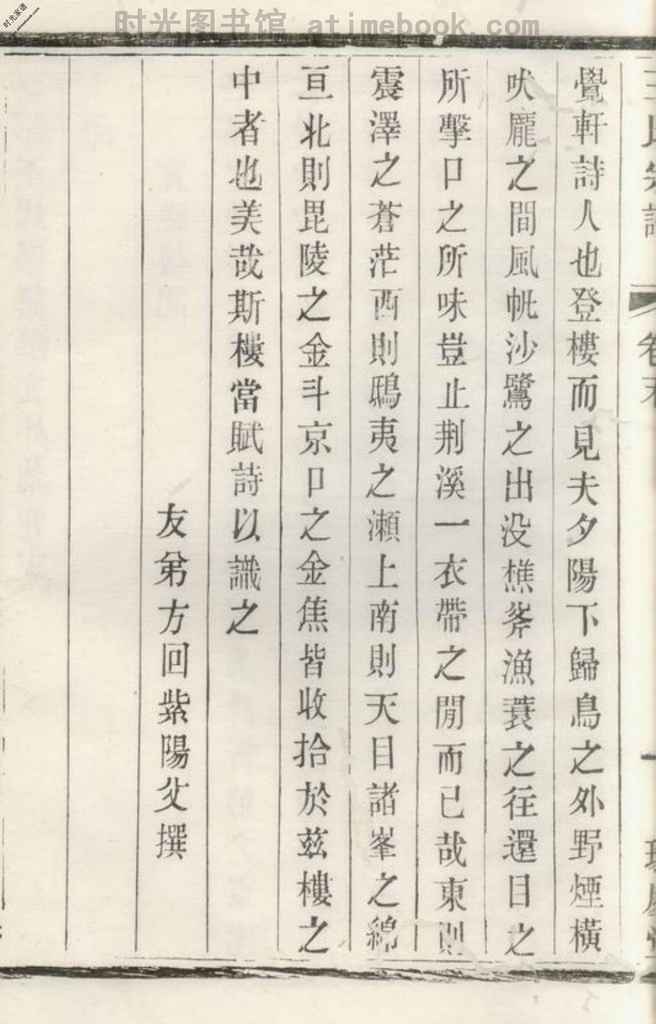 时光图书馆 atimebook.com
時光家譜
覺軒詩人也登樓而見夫夕陽下歸鳥之外野煙橫
吠厖之間風帆沙鷺之出没樵斧漁蓑之往還目之
所擊口之所味豈止荆溪一衣帶之閒而已哉東則
震澤之蒼茫西則鴟夷之瀬上南則天目諸峯之綿
亘北則毘陵之金斗京口之金焦皆收拾於兹樓之
中者也美哉斯樓當賦詩以識之
友弟方回紫陽父撰